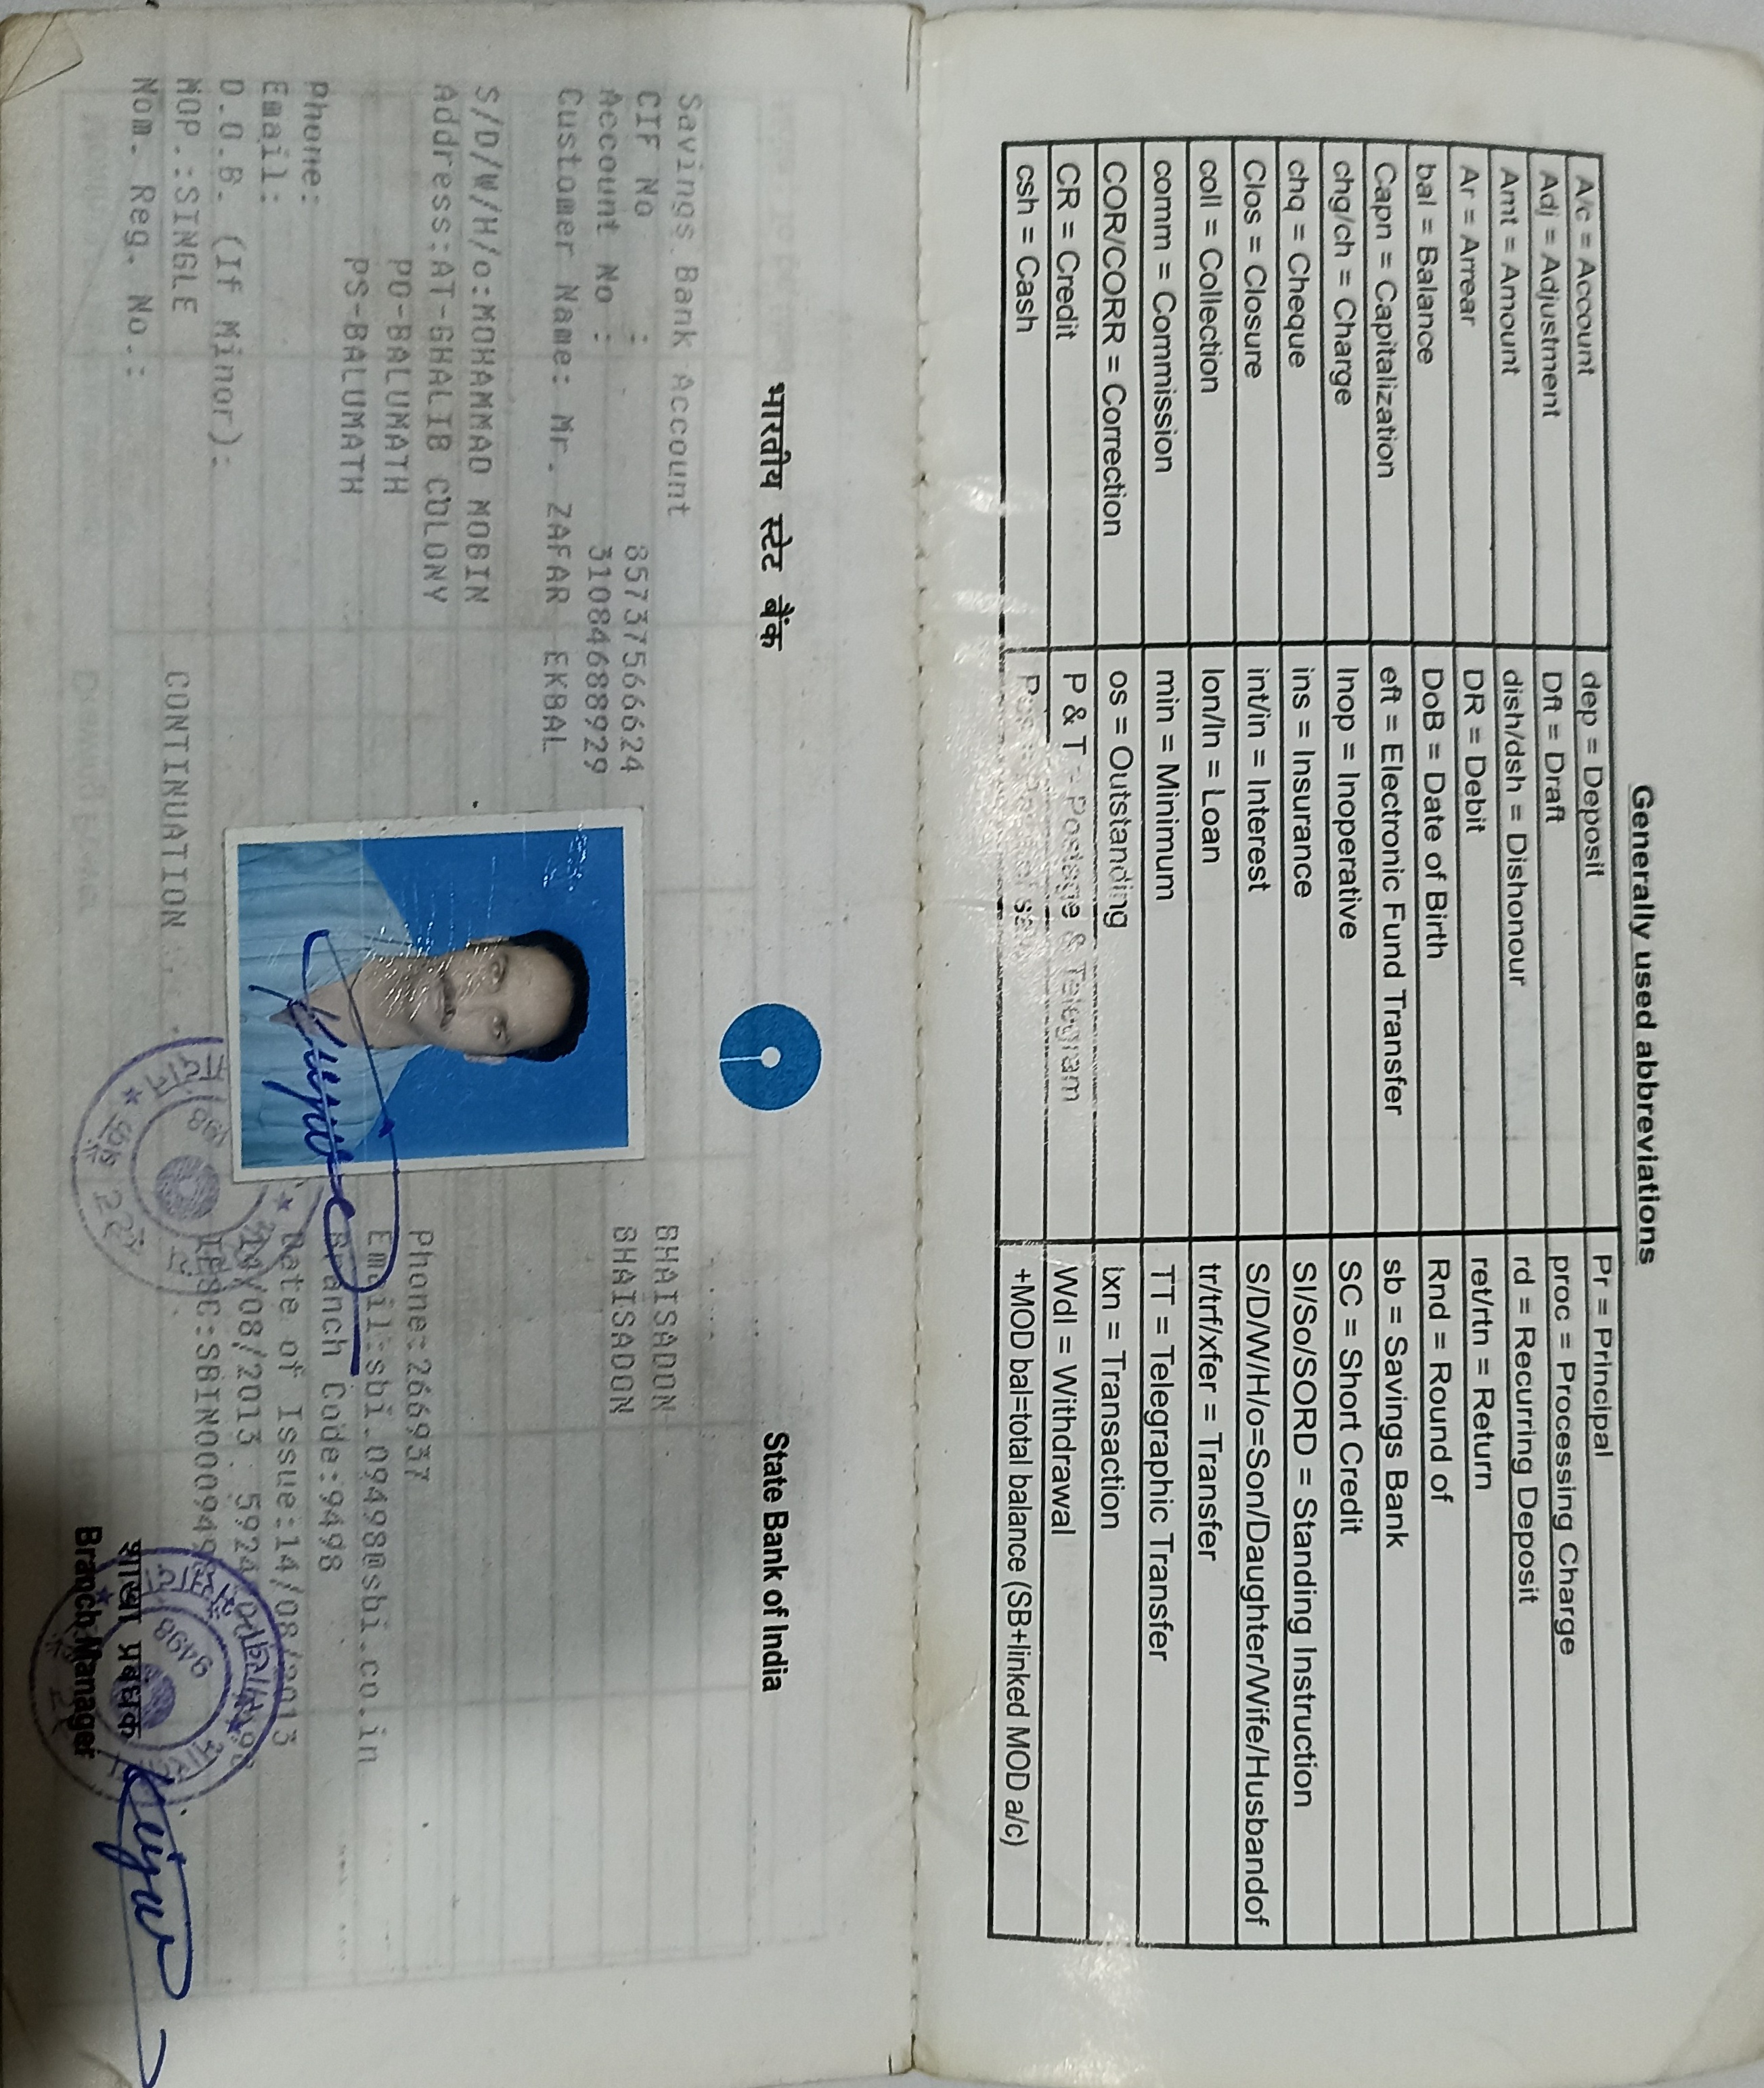 Generally used abbreviations
A/c = Account dep = Deposit Pr = Principal
Adj = Adjustment Dft = Draft proc = Processing Charge
Amt = Amount dish/dsh = Dishonour rd = Recurring Deposit
Ar = Arrear DR = Debit ret/rtn = Return
bal = Balance DoB = Date of Birth Rnd = Round of
Capn = Capitalization eft = Electronic Fund Transfer sb = Savings Bank
chg/ch = Charge Inop = Inoperative SC = Short Credit
chq = Cheque ins = Insurance SI/So/SORD = Standing Instruction
Clos = Closure int/in = Interest S/D/W/H/o=Son/Daughter/Wife/Husbandof
coll = Collection lon/ln = Loan tr/trf/xfer = Transfer
comm = Commission min = Minimum TT = Telegraphic Transfer
COR/CORR = Correction os = Outstanding txn = Transaction
CR = Credit P & T = Postage & Telegram Wdl = Withdrawal
csh = Cash +MOD bal=total balance (SB+linked MOD a/c)
भारतीय स्टेट बैंक State Bank of India
Savings Bank Account
CIF No : 85737566624 BHAISADON
Account No : 31084688929 BHAISADON
Customer Name: Mr. ZAFAR EKBAL
S/D/W/H/o:MOHAMMAD MOBIN
Address:AT-GHALIB COLONY Phone:266937
PO-BALUMATH Email:sbi.09498@sbi.co.in
PS-BALUMATH Branch Code:9498
Phone: Date of Issue:14/08/2013
Email: 14/08/2013 5924
D.O.B. (If Minor): IFSC:SBIN0009498
MOP.:SINGLE CONTINUATION
Nom. Reg. No.:
शाखा प्रबंधक
Branch Manager
9498